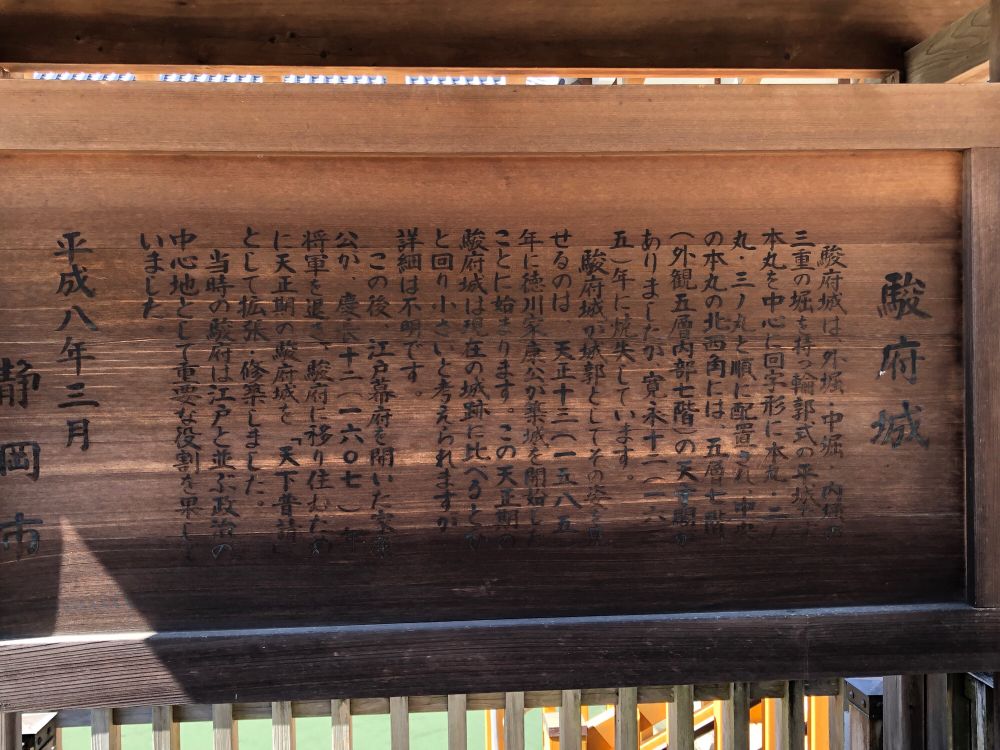 駿府城
駿府城は、外堀・中堀・内堀の
三重の堀を持つ輪郭式の平城です
本丸を中心に回字形に本丸・二ノ
丸・三ノ丸と順に配置され、中央
の本丸の北西角には、五層七階
(外観五層内部七階)の天守閣が
ありましたが、寛永十二(一六三
五)年に焼失しています。
駿府城が城郭としてその姿を見
せるのは、天正十三(一五八五
年に徳川家康公が築城を開始した
ことに始まります。この天正期の
駿府城は現在の城跡に比べるとひ
と回り小さいと考えられますが
詳細は不明です。
この後、江戸幕府を開いた家康
公が、慶長十二(一六〇七)年
将軍を退き、駿府に移り住むため
に天正期の駿府城を「天下普請」
として拡張・修築しました。
当時の駿府は江戸と並ぶ政治の
中心地として重要な役割を果して
いました。
平成八年三月
静岡市